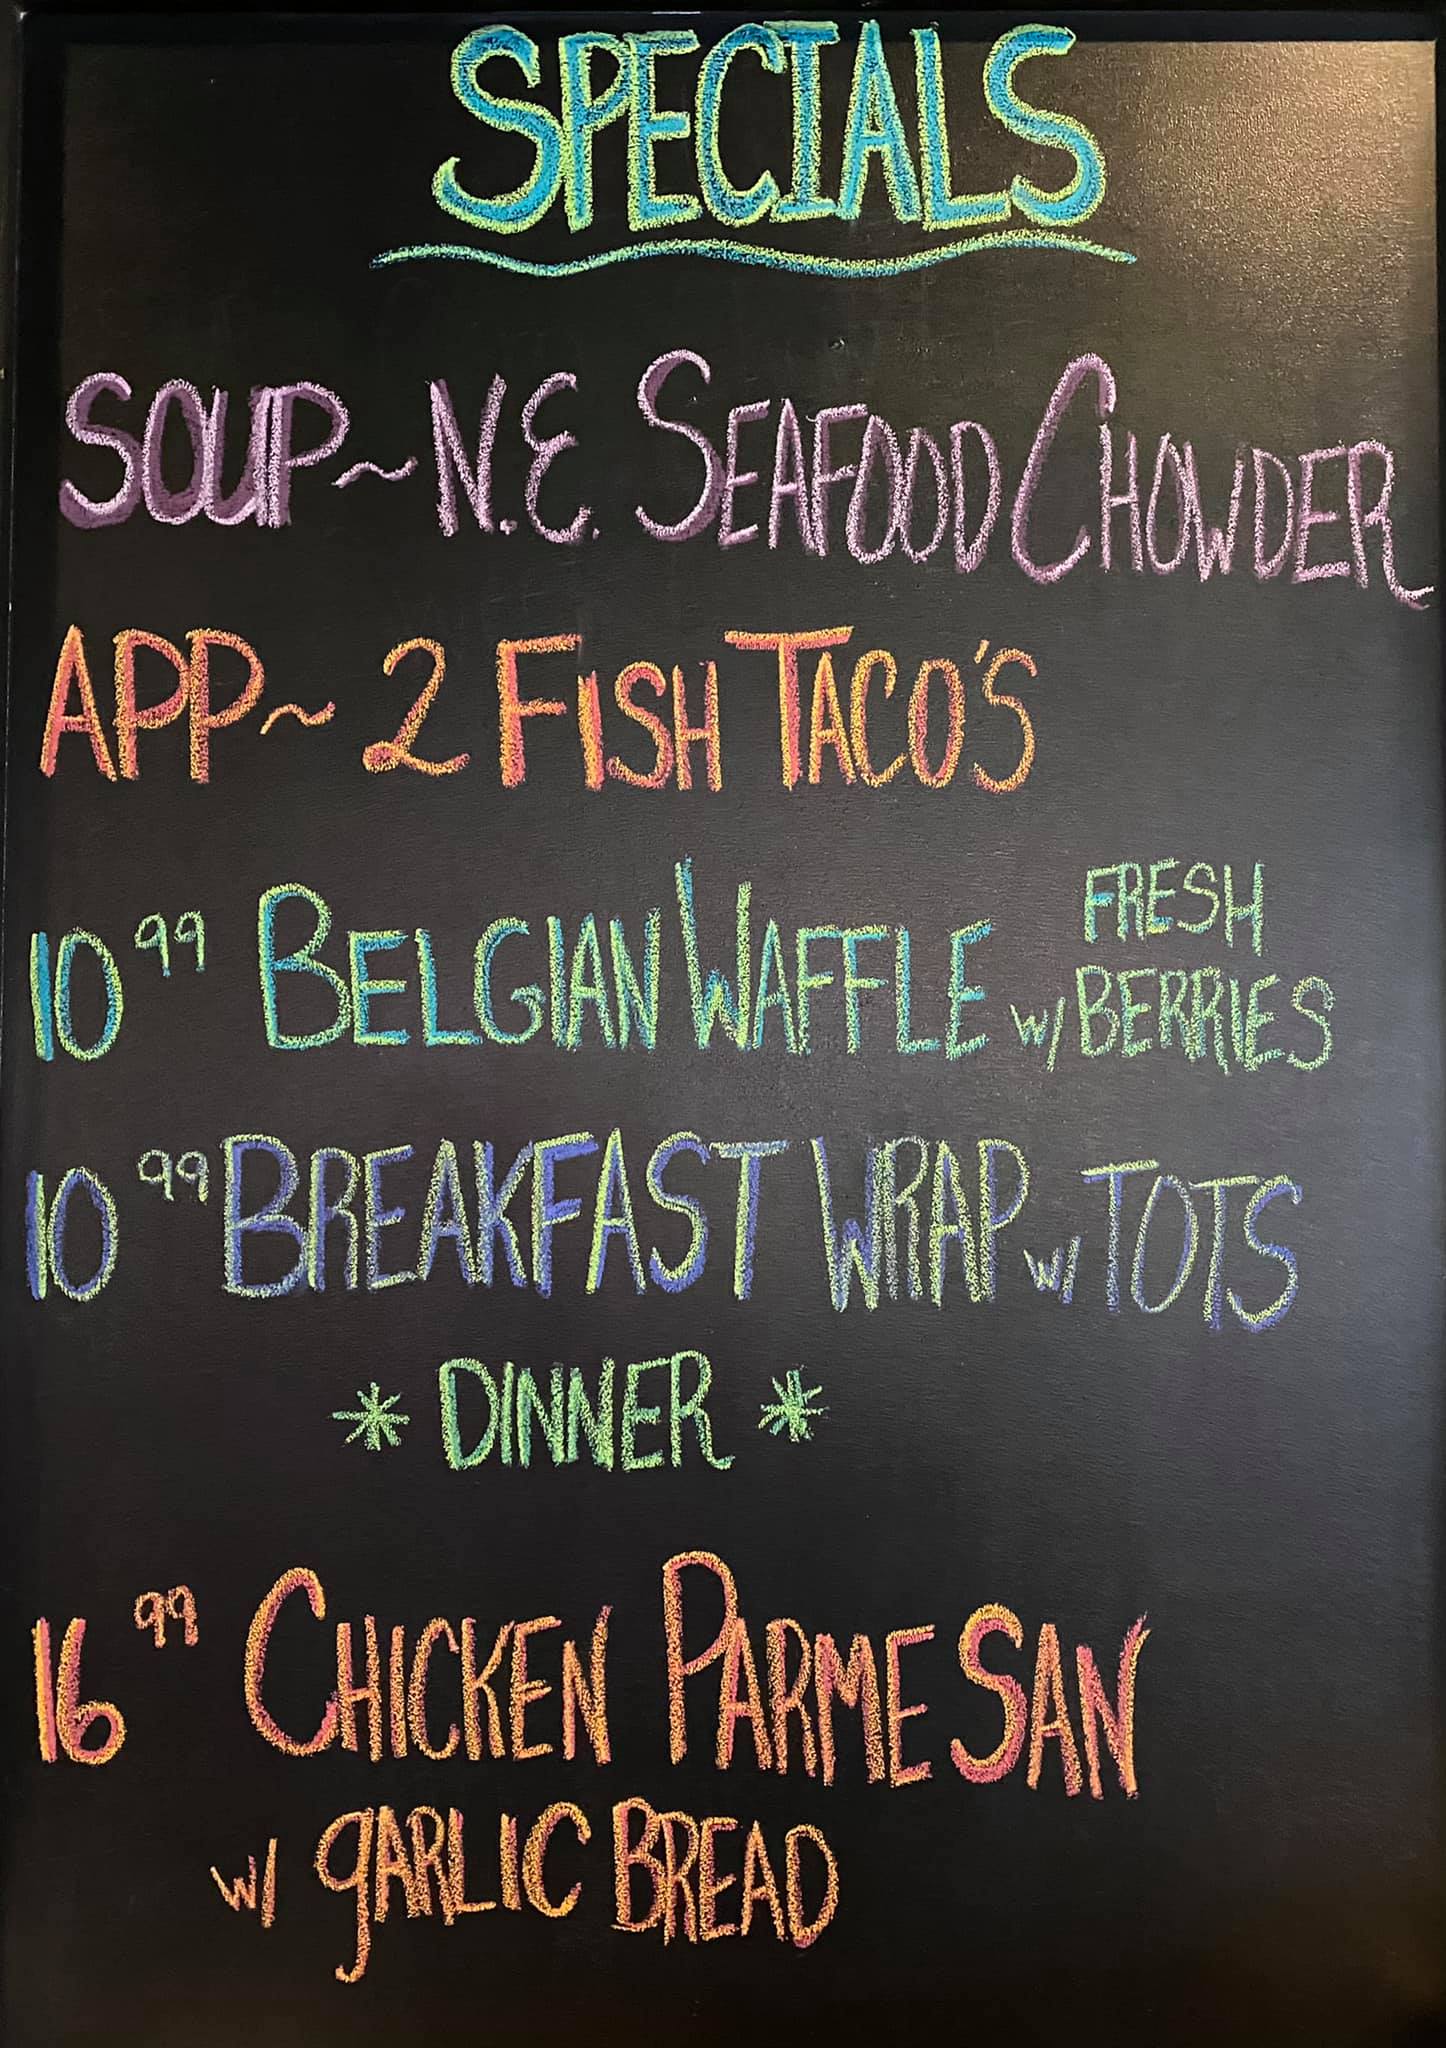 SPECIALS
SOUP~ N.E. SEAFOOD CHOWDER
APP~ 2 FISH TACO'S
10 99 BELGIAN WAFFLE w/ FRESH BERRIES
10 99 BREAKFAST WRAP w/ TOTS
* DINNER *
16 99 CHICKEN PARMESAN
w/ gARLIC BREAD